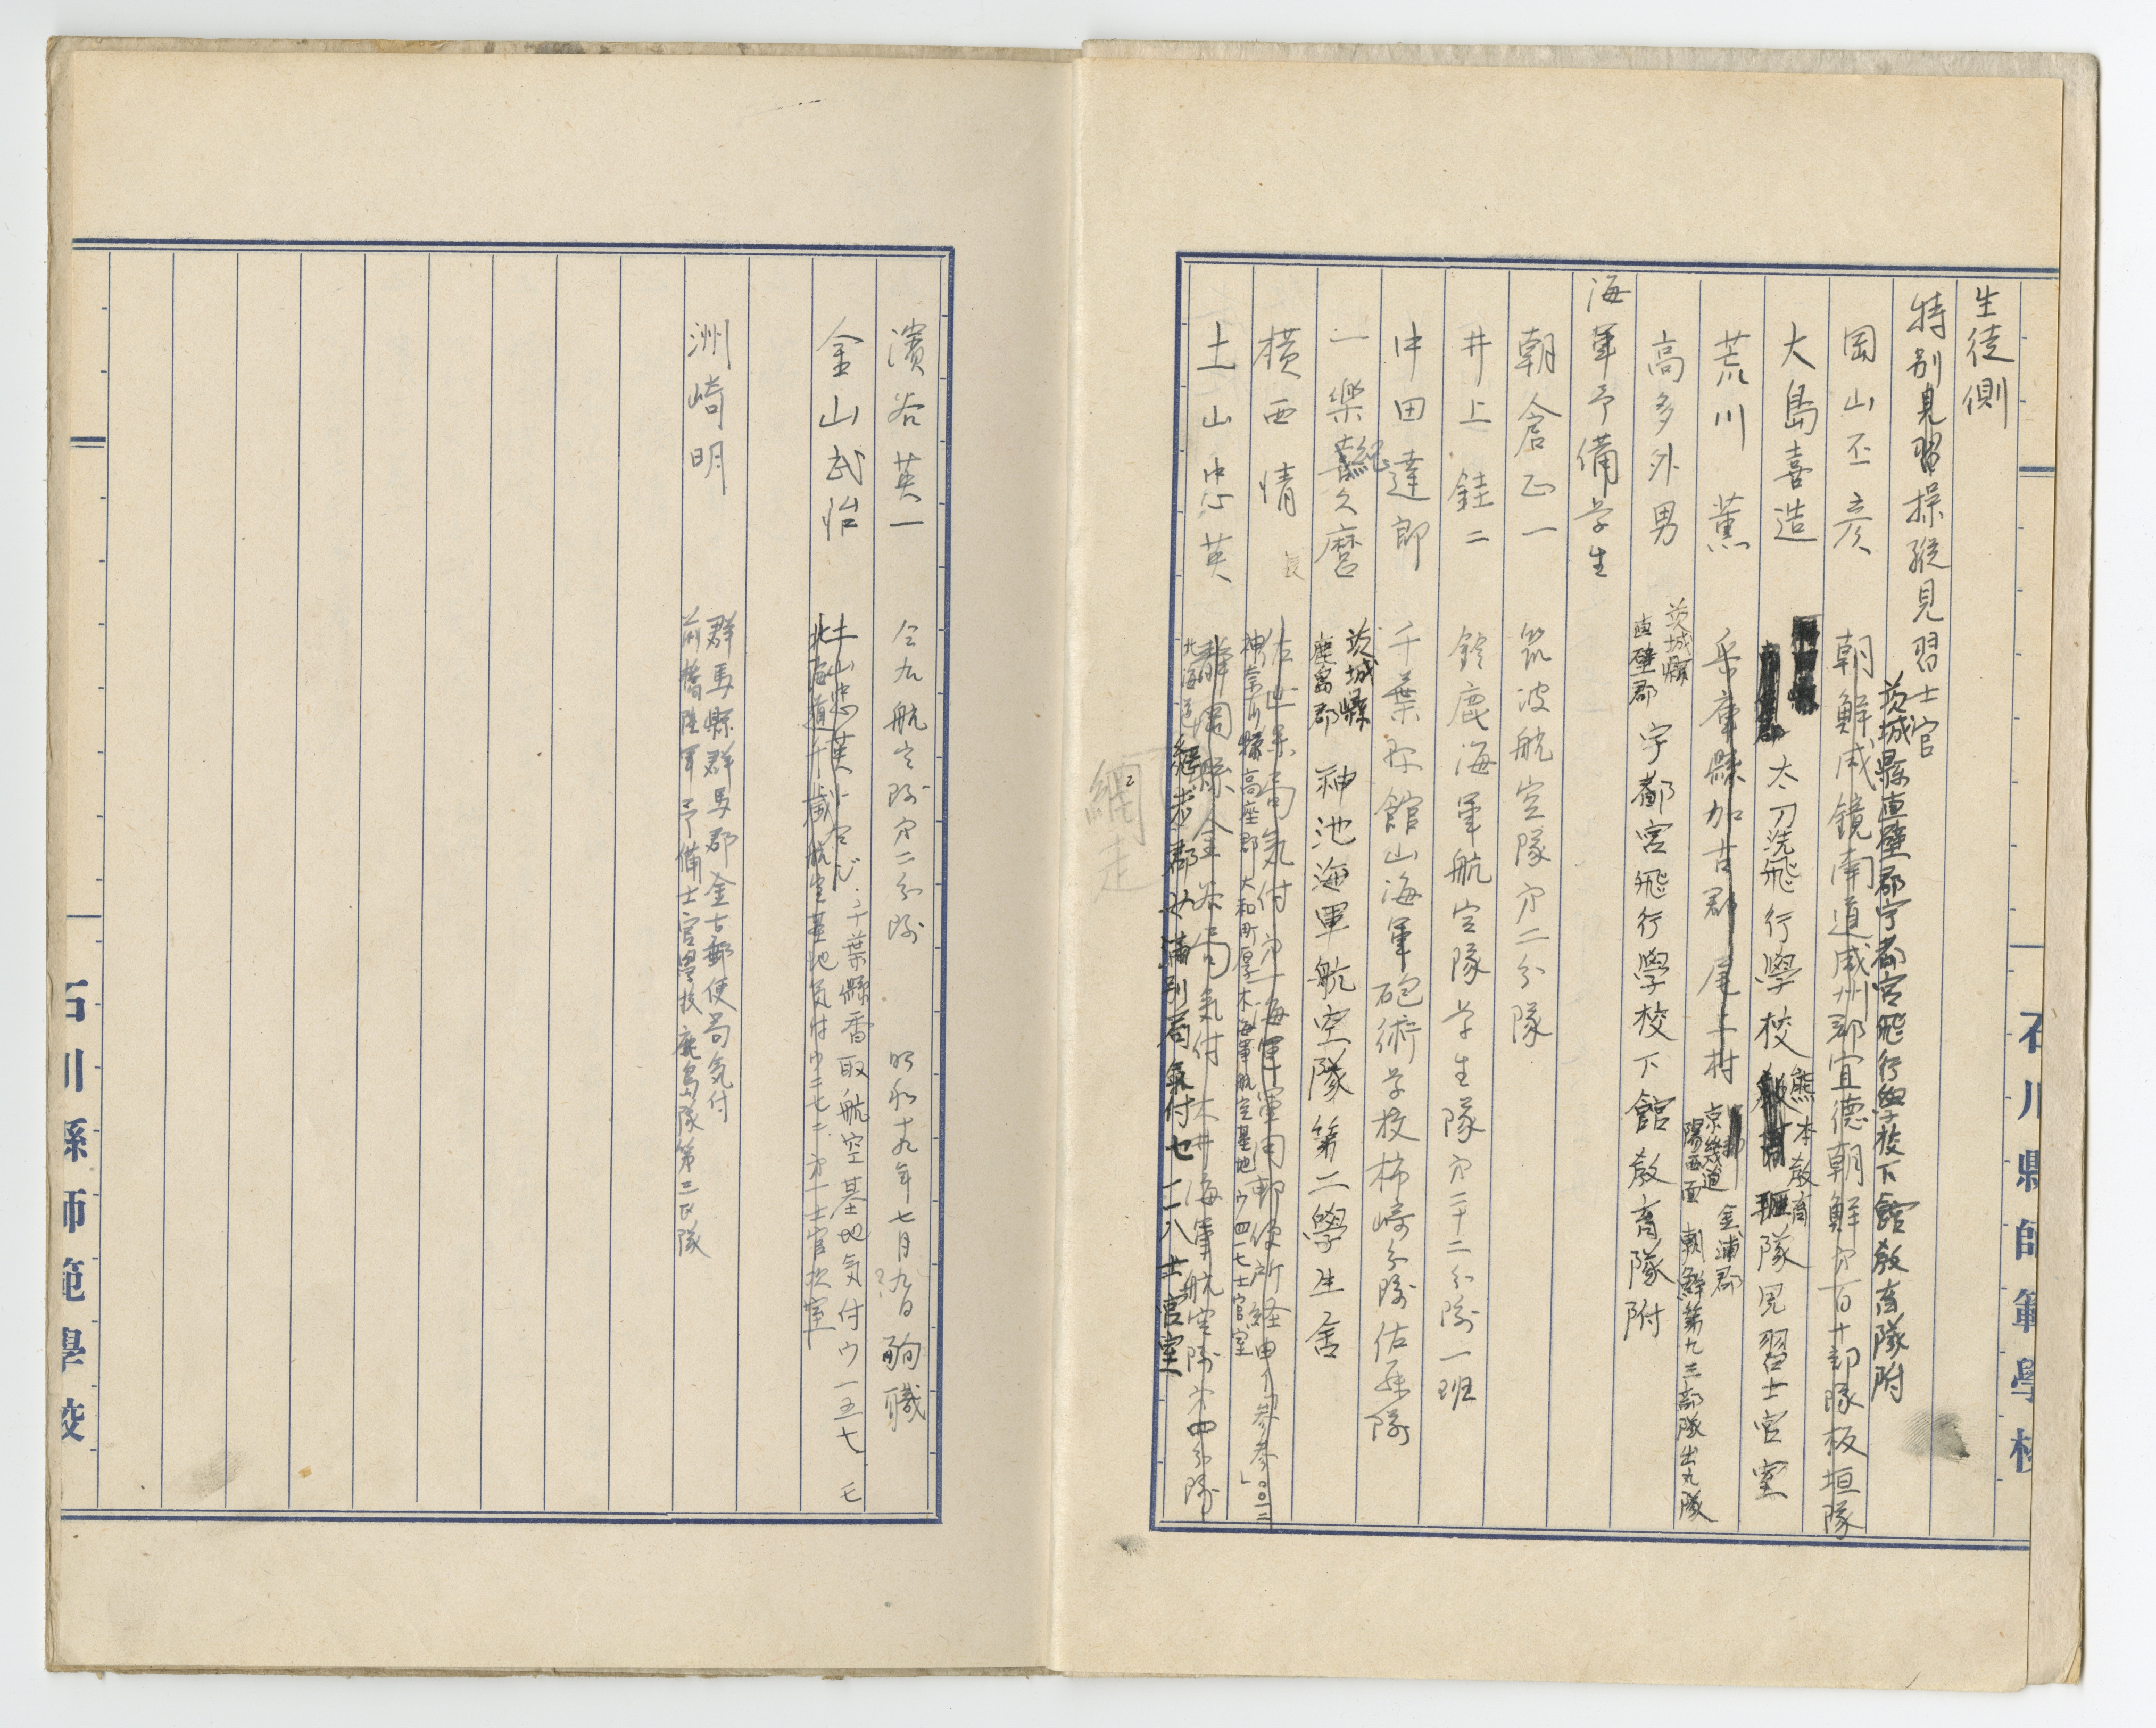 生徒側
特別見習操縦見習士官
茨城縣真壁郡宇都宮飛行學校下館教育隊附
岡山丕彦 朝鮮咸鏡南道咸州郡宣德朝鮮第百十部隊板垣隊
大島喜造 太刀洗飛行學校 熊本教育隊見習士官室
荒川薫 兵庫縣加古郡尾上村 京畿道金浦郡陽西面 朝鮮第九三部隊出丸隊
高多外男 茨城縣真壁郡 宇都宮飛行學校下館教育隊附
海軍予備学生
朝倉正一 筑波航空隊第二分隊
井上銈二 鈴鹿海軍航空隊学生隊第二十二分隊一班
中田達郎 千葉縣館山海軍砲術学校柿崎分隊佐藤隊
一樂喜久麿 茨城縣鹿島郡 神池海軍航空隊第二學生舎
横西情 佐世保局気付第一海軍軍用郵便所経由
神奈川縣高座郡大和町厚木海軍航空基地ウ四一七士官室
土山忠英 静岡縣金谷局気付 大井海軍航空隊第四分隊
北海道網走郡女満別局気付セ二八士官室
網走
石川縣師範學校
濱谷英一 仝九航空隊第二分隊 昭和十九年七月九日殉職
金山武治 土山忠英ト仝ジ 千葉縣香取航空基地気付ウ一五七
北海道千歳航空基地気付ウ二七二 第一士官次室
洲崎明 群馬縣群馬郡金古郵便局気付
前橋陸軍予備士官學校鹿島隊第三区隊
石川縣師範學校